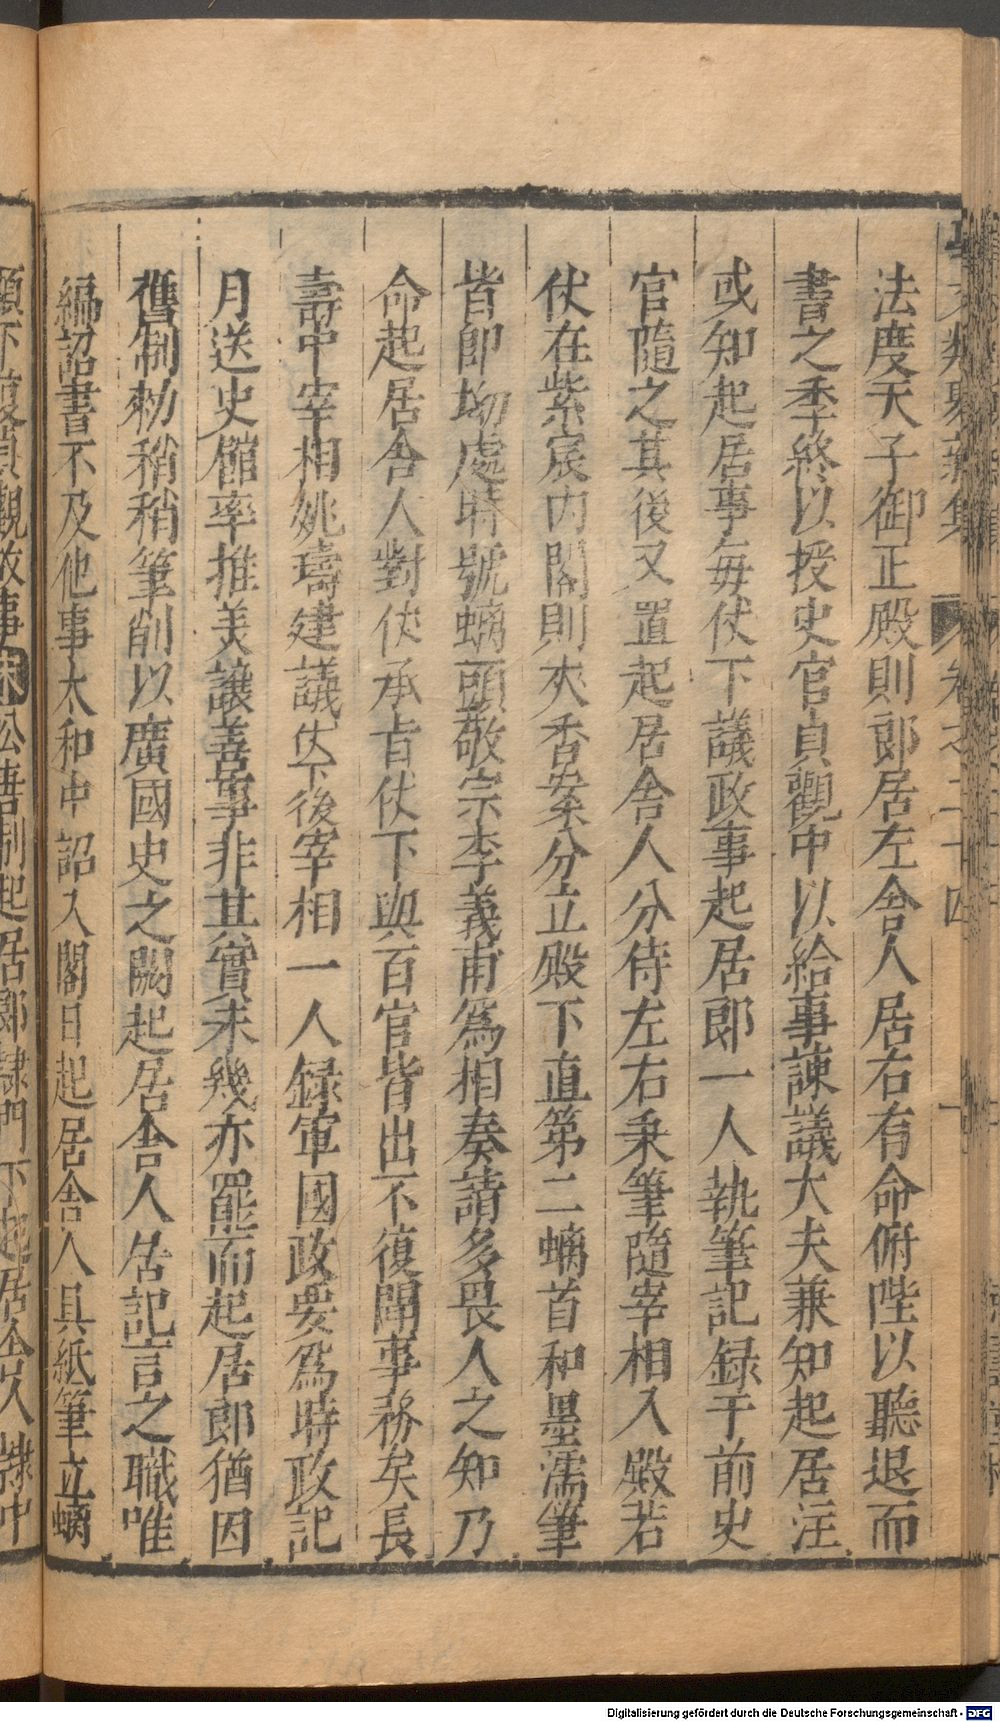 法度天子御正殿則郎居左舎人居右有命俯陛以聽退而
書之季終以授史官貞觀中以給事諫議大夫兼知起居注
或知起居事每仗下議政事起居郎一人執筆記録于前史
官隨之其後又置起居舎人分侍左右秉筆隨宰相入殿若
仗在紫宸内閣則夾香案分立殿下直第二螭首和墨濡筆
皆卽坳處時號螭頭敬宗李義甫爲相奏請多畏人之知乃
命起居舎人對仗承旨仗下與百官皆出不復聞事務矣長
壽中宰相姚璹建議仗下後宰相一人録軍國政要爲時政記
月送史館率推美讓善事非其實未幾亦罷而起居郎猶因
舊制勑稍稍筆削以廣國史之闕起居舎人居記言之職唯
編詔書不及他事太和中詔入閣日起居舎人具紙筆立螭
頭下復貞觀故事宋 唐制起居郎隷門下起居舎人隷中
Digitalisierung gefördert durch die Deutsche Forschungsgemeinschaft - DFG